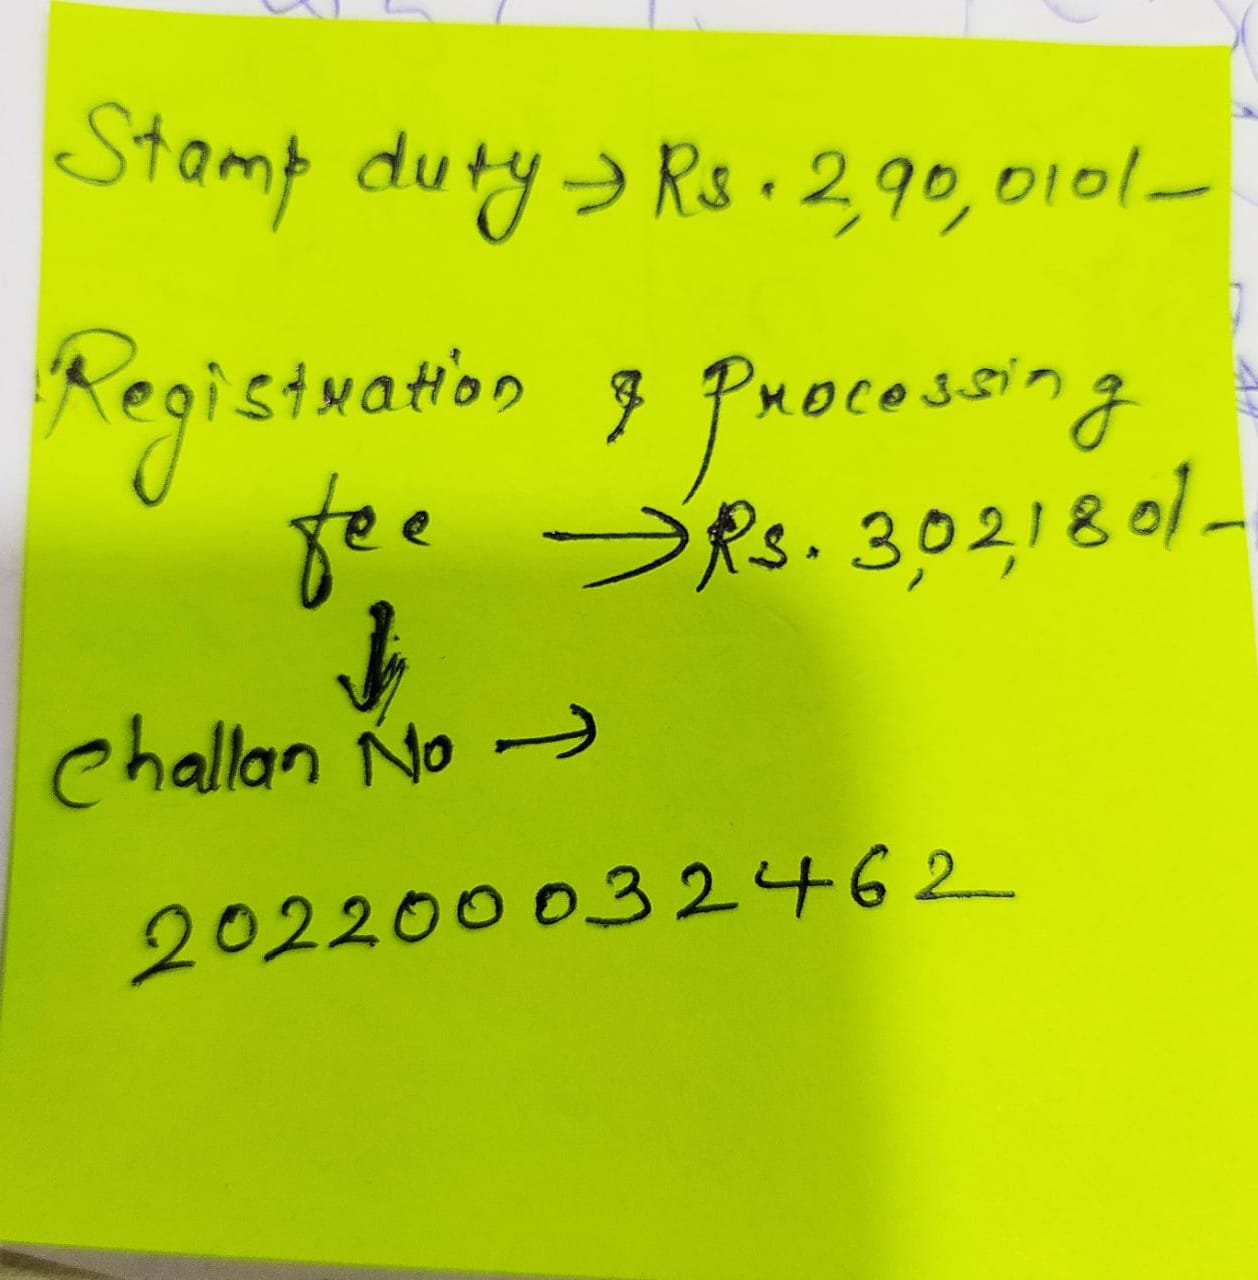 Stamp duty → Rs. 2,90,010/-
Registration & Processing
fee → Rs. 3,02,180/-
↓
Challan No →
202200032462